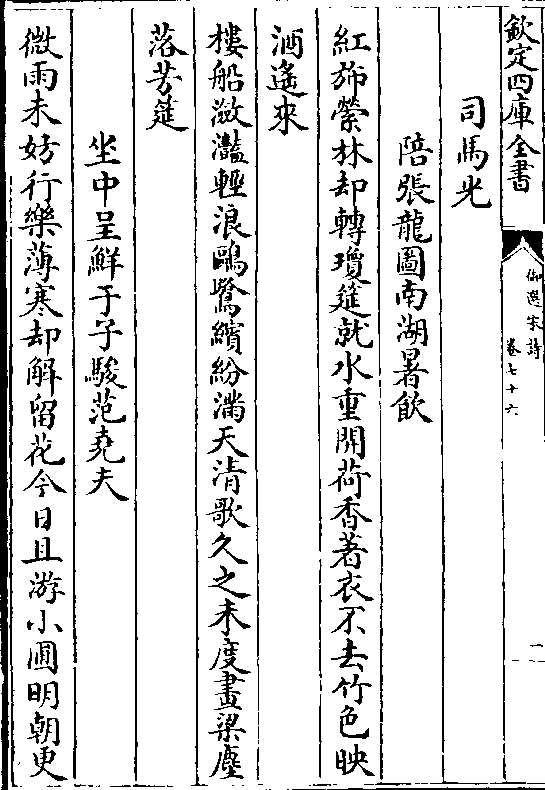 欽定四庫全書
御選宋詩
卷七十六
一
司馬光
陪張龍圖南湖暑飲
紅斾縈林却轉瓊筵就水重開荷香著衣不去竹色映
酒遙來
樓船瀲灩輕浪鷗鷺繽紛滿天清歌久之未度畫梁塵
落芳筵
坐中呈鮮于子駿范堯夫
微雨未妨行樂薄寒却解留花今日且游小圃明朝更